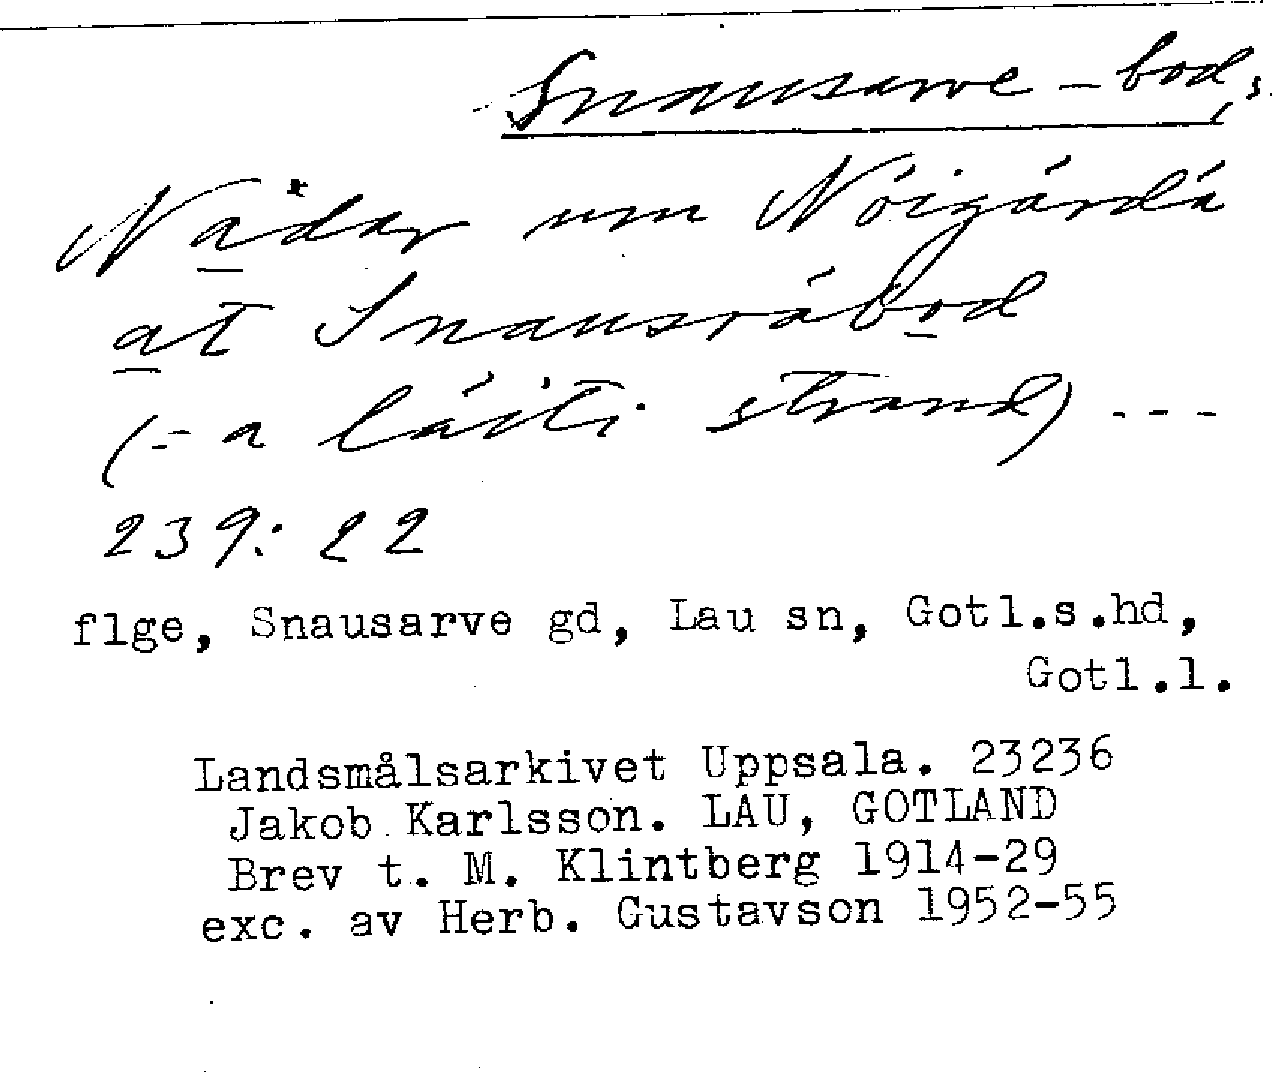 Snausarve-bod, s.
Nädar um Nöigårdå
at Snausråbod
(= a låiti strand) ---
239: 22
flge, Snausarve gd, Lau sn, Gotl.s.hd,
Gotl.l.
Landsmålsarkivet Uppsala. 23236
Jakob Karlsson. LAU, GOTLAND
Brev t. M. Klintberg 1914-29
exc. av Herb. Gustavson 1952-55